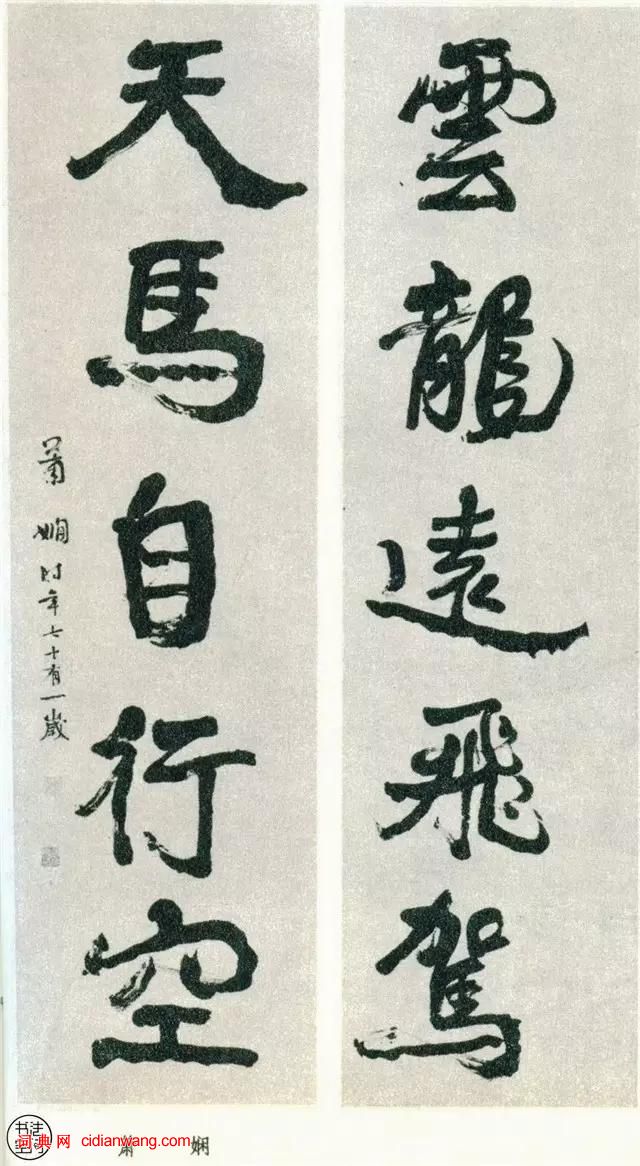 雲龍遠飛駕
天馬自行空
蕭嫻時年七十有一歲
词典网 cidianwang.com
萧 娴